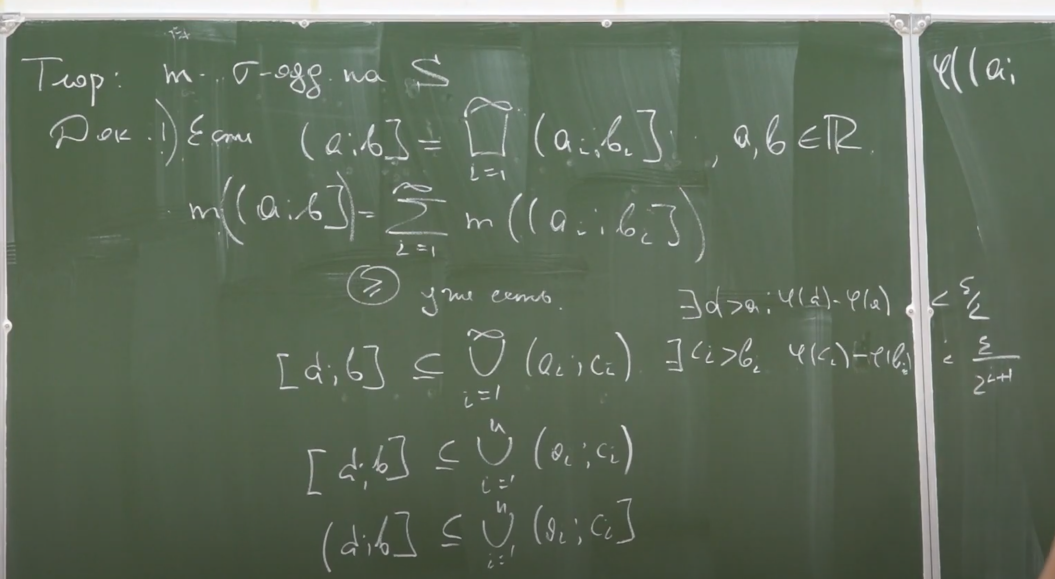 Теор: m - σ-адд. на S
Док. 1) Если (a;b] = ∐_{i=1}^{∞} (a_i;b_i], a,b ∈ ℝ.
m((a;b]) = ∑_{i=1}^{∞} m((a_i;b_i])
≥ уже есть.
∃d>a: φ(d)-φ(a) < ε/2
[d;b] ⊆ ⋃_{i=1}^{∞} (a_i;c_i) ∃c_i>b_i φ(c_i)-φ(b_i) < ε/2^{i+1}
[d;b] ⊆ ⋃_{i=1}^{n} (a_i;c_i)
(d;b] ⊆ ⋃_{i=1}^{n} (a_i;c_i]
φ((a;